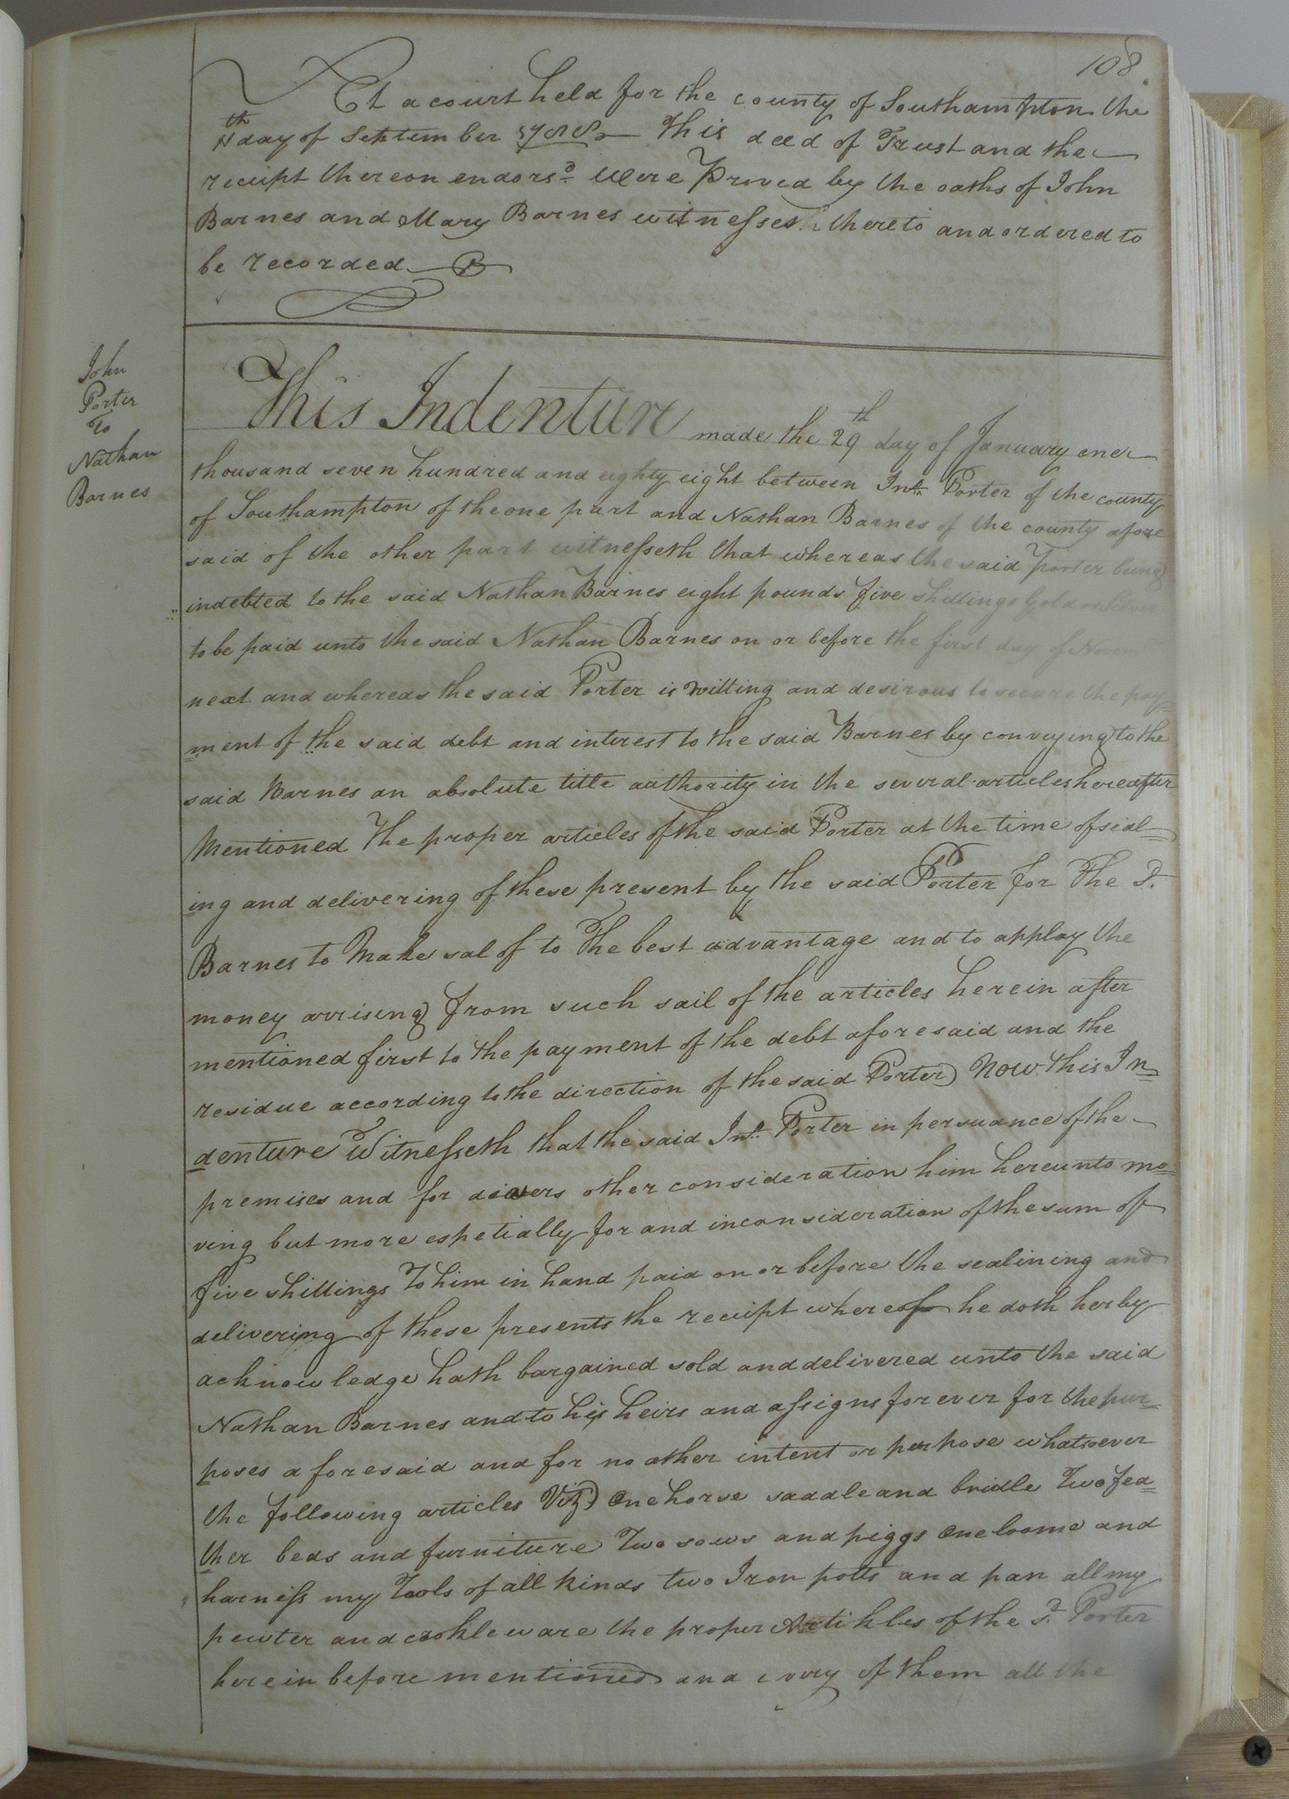 108.
At a court held for the county of Southampton the
11th day of September 1788 This deed of Trust and the
receipt thereon endorsd. were Proved by the oaths of John
Barnes and Mary Barnes witnesseth thereto and ordered to
be recorded
John
Porter
To
Nathan
Barnes
This Indenture made the 29th day of January one
thousand seven hundred and eighty eight between Jno. Porter of the county
of Southampton of the one part and Nathan Barnes of the county afore
said of the other part witnesseth that whereas the said Porter being
indebted to the said Nathan Barnes eight pounds five shillings Gold or
to be paid unto the said Nathan Barnes on or before the first day of Novem
next and whereas the said Porter is willing and desirous to secure the pay-
ment of the said debt and interest to the said Barnes by conveying to the
said Barnes an absolute title authority in the several articles hereafter
Mentioned The proper articles of the said Porter at the time of seal-
ing and delivering of these present by the said Porter for The Sd.
Barnes to Make sal of to The best advantage and to applay the
money arrising from such sail of the articles herein after
mentioned first to the payment of the debt aforesaid and the
residue according to the direction of the said Porter Now this In=
denture Witnesseth that the said Jno. Porter in persuance of the
premises and for divers other consideration him hereunto mo=
ving but more espetially for and inconsideration of the sum of
five shillings To him in hand paid on or before the sealining and
delivering of these presents the receipt whereof he doth herby
acknowledge hath bargained sold and delivered unto the said
Nathan Barnes and to his heirs and assigns forever for the pur=
poses aforesaid and for no other intent or perpose whatsoever
the following articles Viz) One horse saddle and bridle Two fea=
ther beds and furniture Two sows and piggs One loome and
harness my Tools of all kinds two Iron potts and pan all my
pewter and crokleware the proper Artikles of the Sd. Porter
herein before mentioned and every of them all the